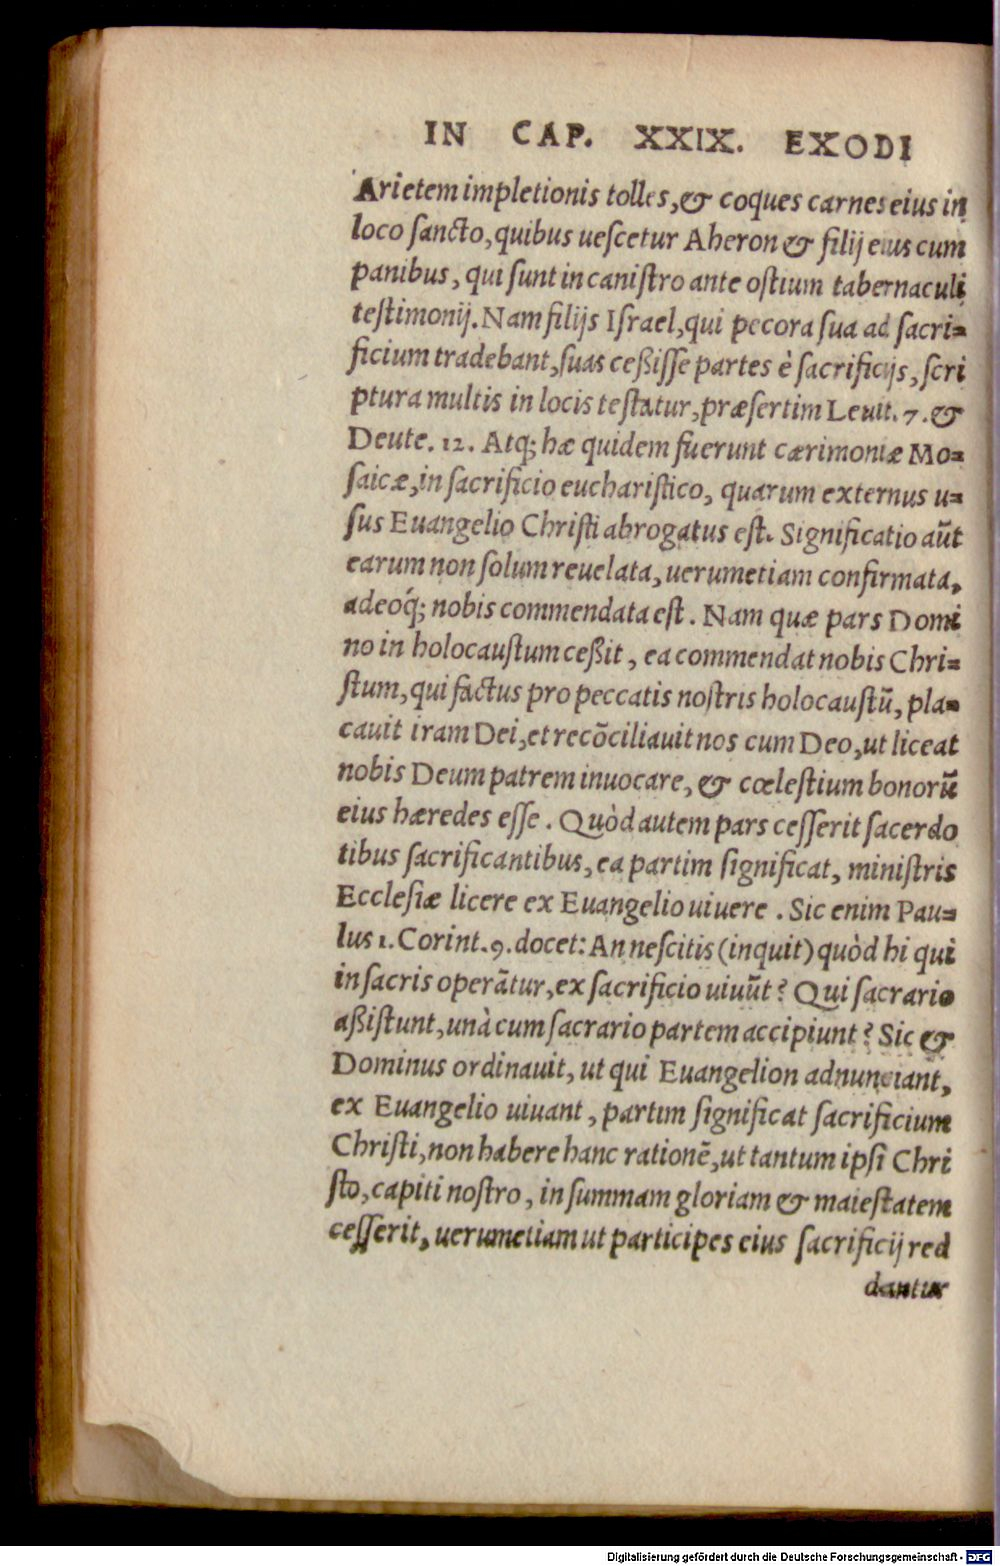 IN CAP. XXIX. EXODI
Arietem impletionis tolles, & coques carnes eius in
loco sancto, quibus uescetur Aheron & filij eius cum
panibus, qui sunt in canistro ante ostium tabernaculi
testimonij. Nam filijs Israel, qui pecora sua ad sacri=
ficium tradebant, suas ceßisse partes è sacrificijs, scri
ptura multis in locis testatur, præsertim Leuit. 7. &
Deute. 12. Atq; hæ quidem fuerunt cærimoniæ Mo=
saicæ, in sacrificio eucharistico, quarum externus u=
sus Euangelio Christi abrogatus est. Significatio aũt
earum non solum reuelata, uerumetiam confirmata,
adeóq; nobis commendata est. Nam quæ pars Domi
no in holocaustum ceßit, ea commendat nobis Chri=
stum, qui factus pro peccatis nostris holocaustũ, pla=
cauit iram Dei, et recõciliauit nos cum Deo, ut liceat
nobis Deum patrem inuocare, & cœlestium bonorũ
eius hæredes esse. Quòd autem pars cesserit sacerdo
tibus sacrificantibus, ea partim significat, ministris
Ecclesiæ licere ex Euangelio uiuere. Sic enim Pau=
lus 1. Corint. 9. docet: An nescitis (inquit) quòd hi qui
in sacris operãtur, ex sacrificio uiuũt? Qui sacrario
aßistunt, unà cum sacrario partem accipiunt? Sic &
Dominus ordinauit, ut qui Euangelion adnunciant,
ex Euangelio uiuant, partim significat sacrificium
Christi, non habere hanc rationẽ, ut tantum ipsi Chri
sto, capiti nostro, in summam gloriam & maiestatem
cesserit, uerumetiam ut participes eius sacrificij red
dantur
Digitalisierung gefördert durch die Deutsche Forschungsgemeinschaft - DFG